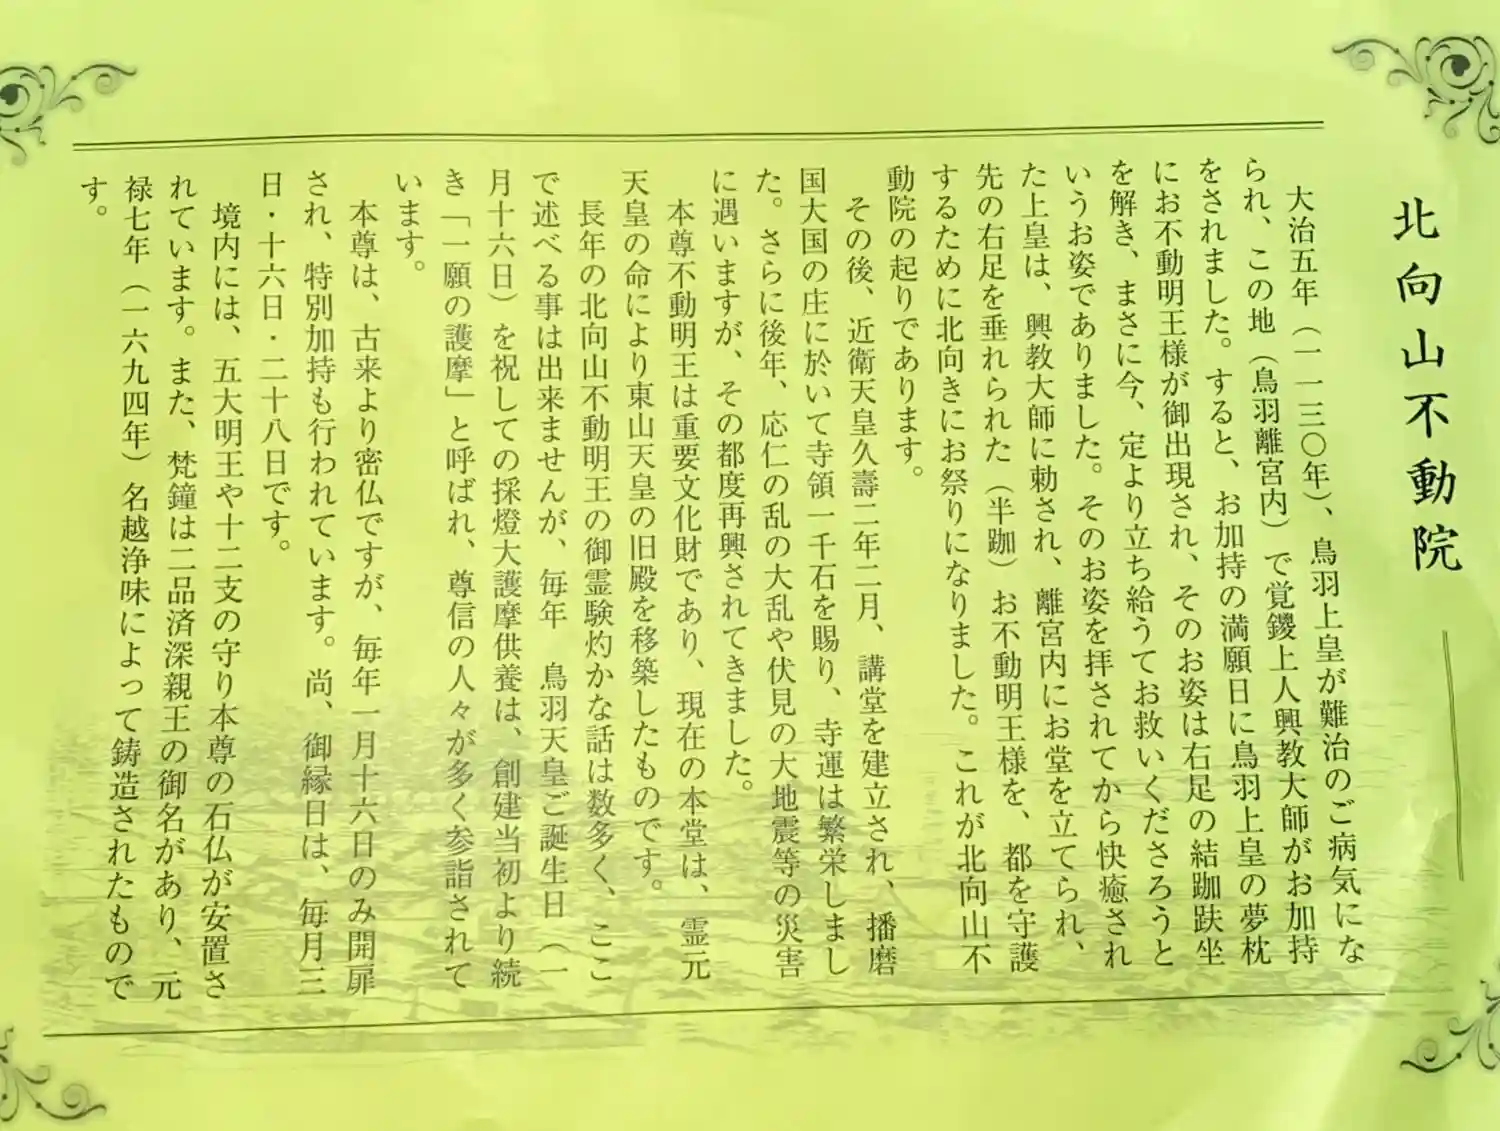 北向山不動院
大治五年（一一三〇年）、鳥羽上皇が難治のご病気にな
られ、この地（鳥羽離宮内）で覚鑁上人興教大師がお加持
をされました。すると、お加持の満願日に鳥羽上皇の夢枕
にお不動明王様が御出現され、そのお姿は右足の結跏趺坐
を解き、まさに今、定より立ち給うてお救いくださろうと
いうお姿でありました。そのお姿を拝されてから快癒され
た上皇は、興教大師に勅され、離宮内にお堂を立てられ、
先の右足を垂れられた（半跏）お不動明王様を、都を守護
するために北向きにお祭りになりました。これが北向山不
動院の起りであります。
その後、近衛天皇久壽二年二月、講堂を建立され、播磨
国大国の庄に於いて寺領一千石を賜り、寺運は繁栄しまし
た。さらに後年、応仁の乱の大乱や伏見の大地震等の災害
に遇いますが、その都度再興されてきました。
本尊不動明王は重要文化財であり、現在の本堂は、霊元
天皇の命により東山天皇の旧殿を移築したものです。
長年の北向山不動明王の御霊験灼かな話は数多く、ここ
で述べる事は出来ませんが、毎年　鳥羽天皇ご誕生日（一
月十六日）を祝しての採燈大護摩供養は、創建当初より続
き「一願の護摩」と呼ばれ、尊信の人々が多く参詣されて
います。
本尊は、古来より密仏ですが、毎年一月十六日のみ開扉
され、特別加持も行われています。尚、御縁日は、毎月三
日・十六日・二十八日です。
境内には、五大明王や十二支の守り本尊の石仏が安置さ
れています。また、梵鐘は二品済深親王の御名があり、元
禄七年（一六九四年）名越浄味によって鋳造されたもので
す。